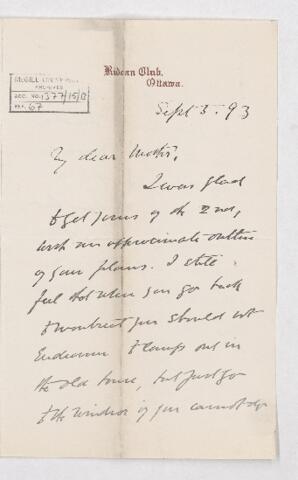 McGILL UNIVERSITY
ARCHIVES
ACC. NO. 1377/15/12
REF. 67
Rideau Club,
Ottawa.
Sept 5. 93
My dear Mother,
I was glad
to get yours of the 2nd,
with an approximate outline
of your plans. I still
feel that when you go back
to Montreal you should not
Endeavour to camp out in
the old house, but just go
to the Windsor if you cannot